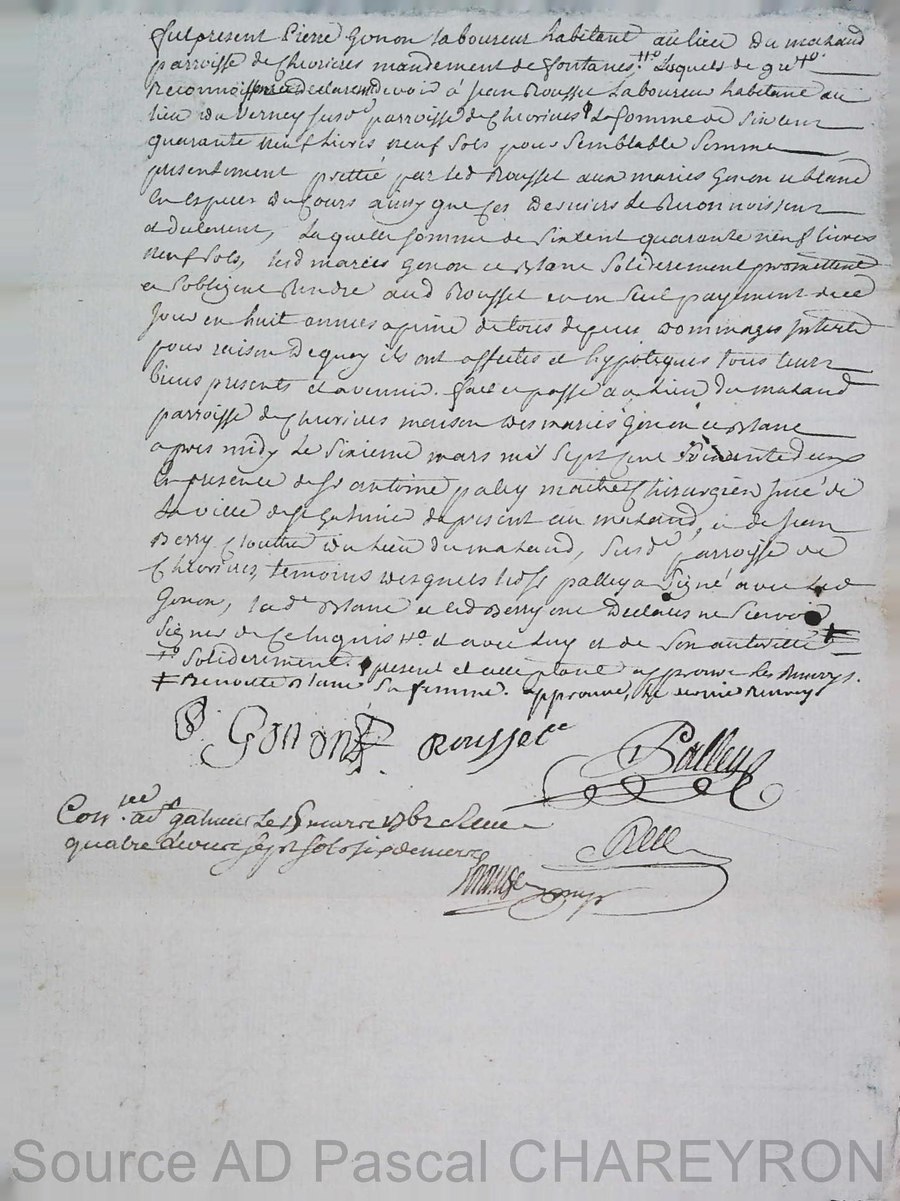 fut present Pierre Gonon laboureur habitant au lieu du mahaud
parroisse de Chevrieres mandement de fontanes lesquels de gré
Reconnoissent et declarent devoir à Jean Rousset laboureur habitant au
lieu du Verney susd parroisse de Chevrieres la somme de six cent
quarante neuf livres neuf sols pour semblable somme
presentement prettée par led Rousset aux mariés Gonon et blanc
en especes du Cours ainsy que ces derniers le Reconnoissent
et declarent, laquelle somme de six cent quarante neuf livres
neuf sols, lesd mariés Gonon et Blanc soliderement promettent
et s'obligent Rendre aud Rousset en un seul payement dicé
jour en huit années a peine de tous depens dommages interets
pour raison dequoy ils ont affectés et hypotequés tous leurs
biens presents et avenir. fait et passé au lieu du mahaud
parroisse de Chevrieres maison des mariés Gonon et Blanc
apres midy le sixieme mars mil sept cent soixante deux
En presence de Sr antoine palley maitre Chirurgien juré de
la ville de St Galmier de present au mahaud, et de Jean
Berry Cloutier du lieu du mahaud, susde parroisse de
Chevrieres, temoins desquels led Sr palley a signé avec led
Gonon, lade Blanc et led Berry ont Declarés ne sçavoir
signer de ce enquis et avec luy et de son autorité
soliderement. present et acceptant approuve les Renvoys.
Benoitte Blanc sa femme. approuve le Renvoy
Gonon Rousset Palley
Con.lee a St galmier le 15 mars 1762 Reçu
quatre livres sept sols six deniers